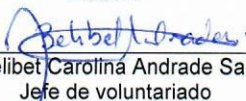 Belibet Andrade
elibet Carolina Andrade Sa
Jefe de voluntariado